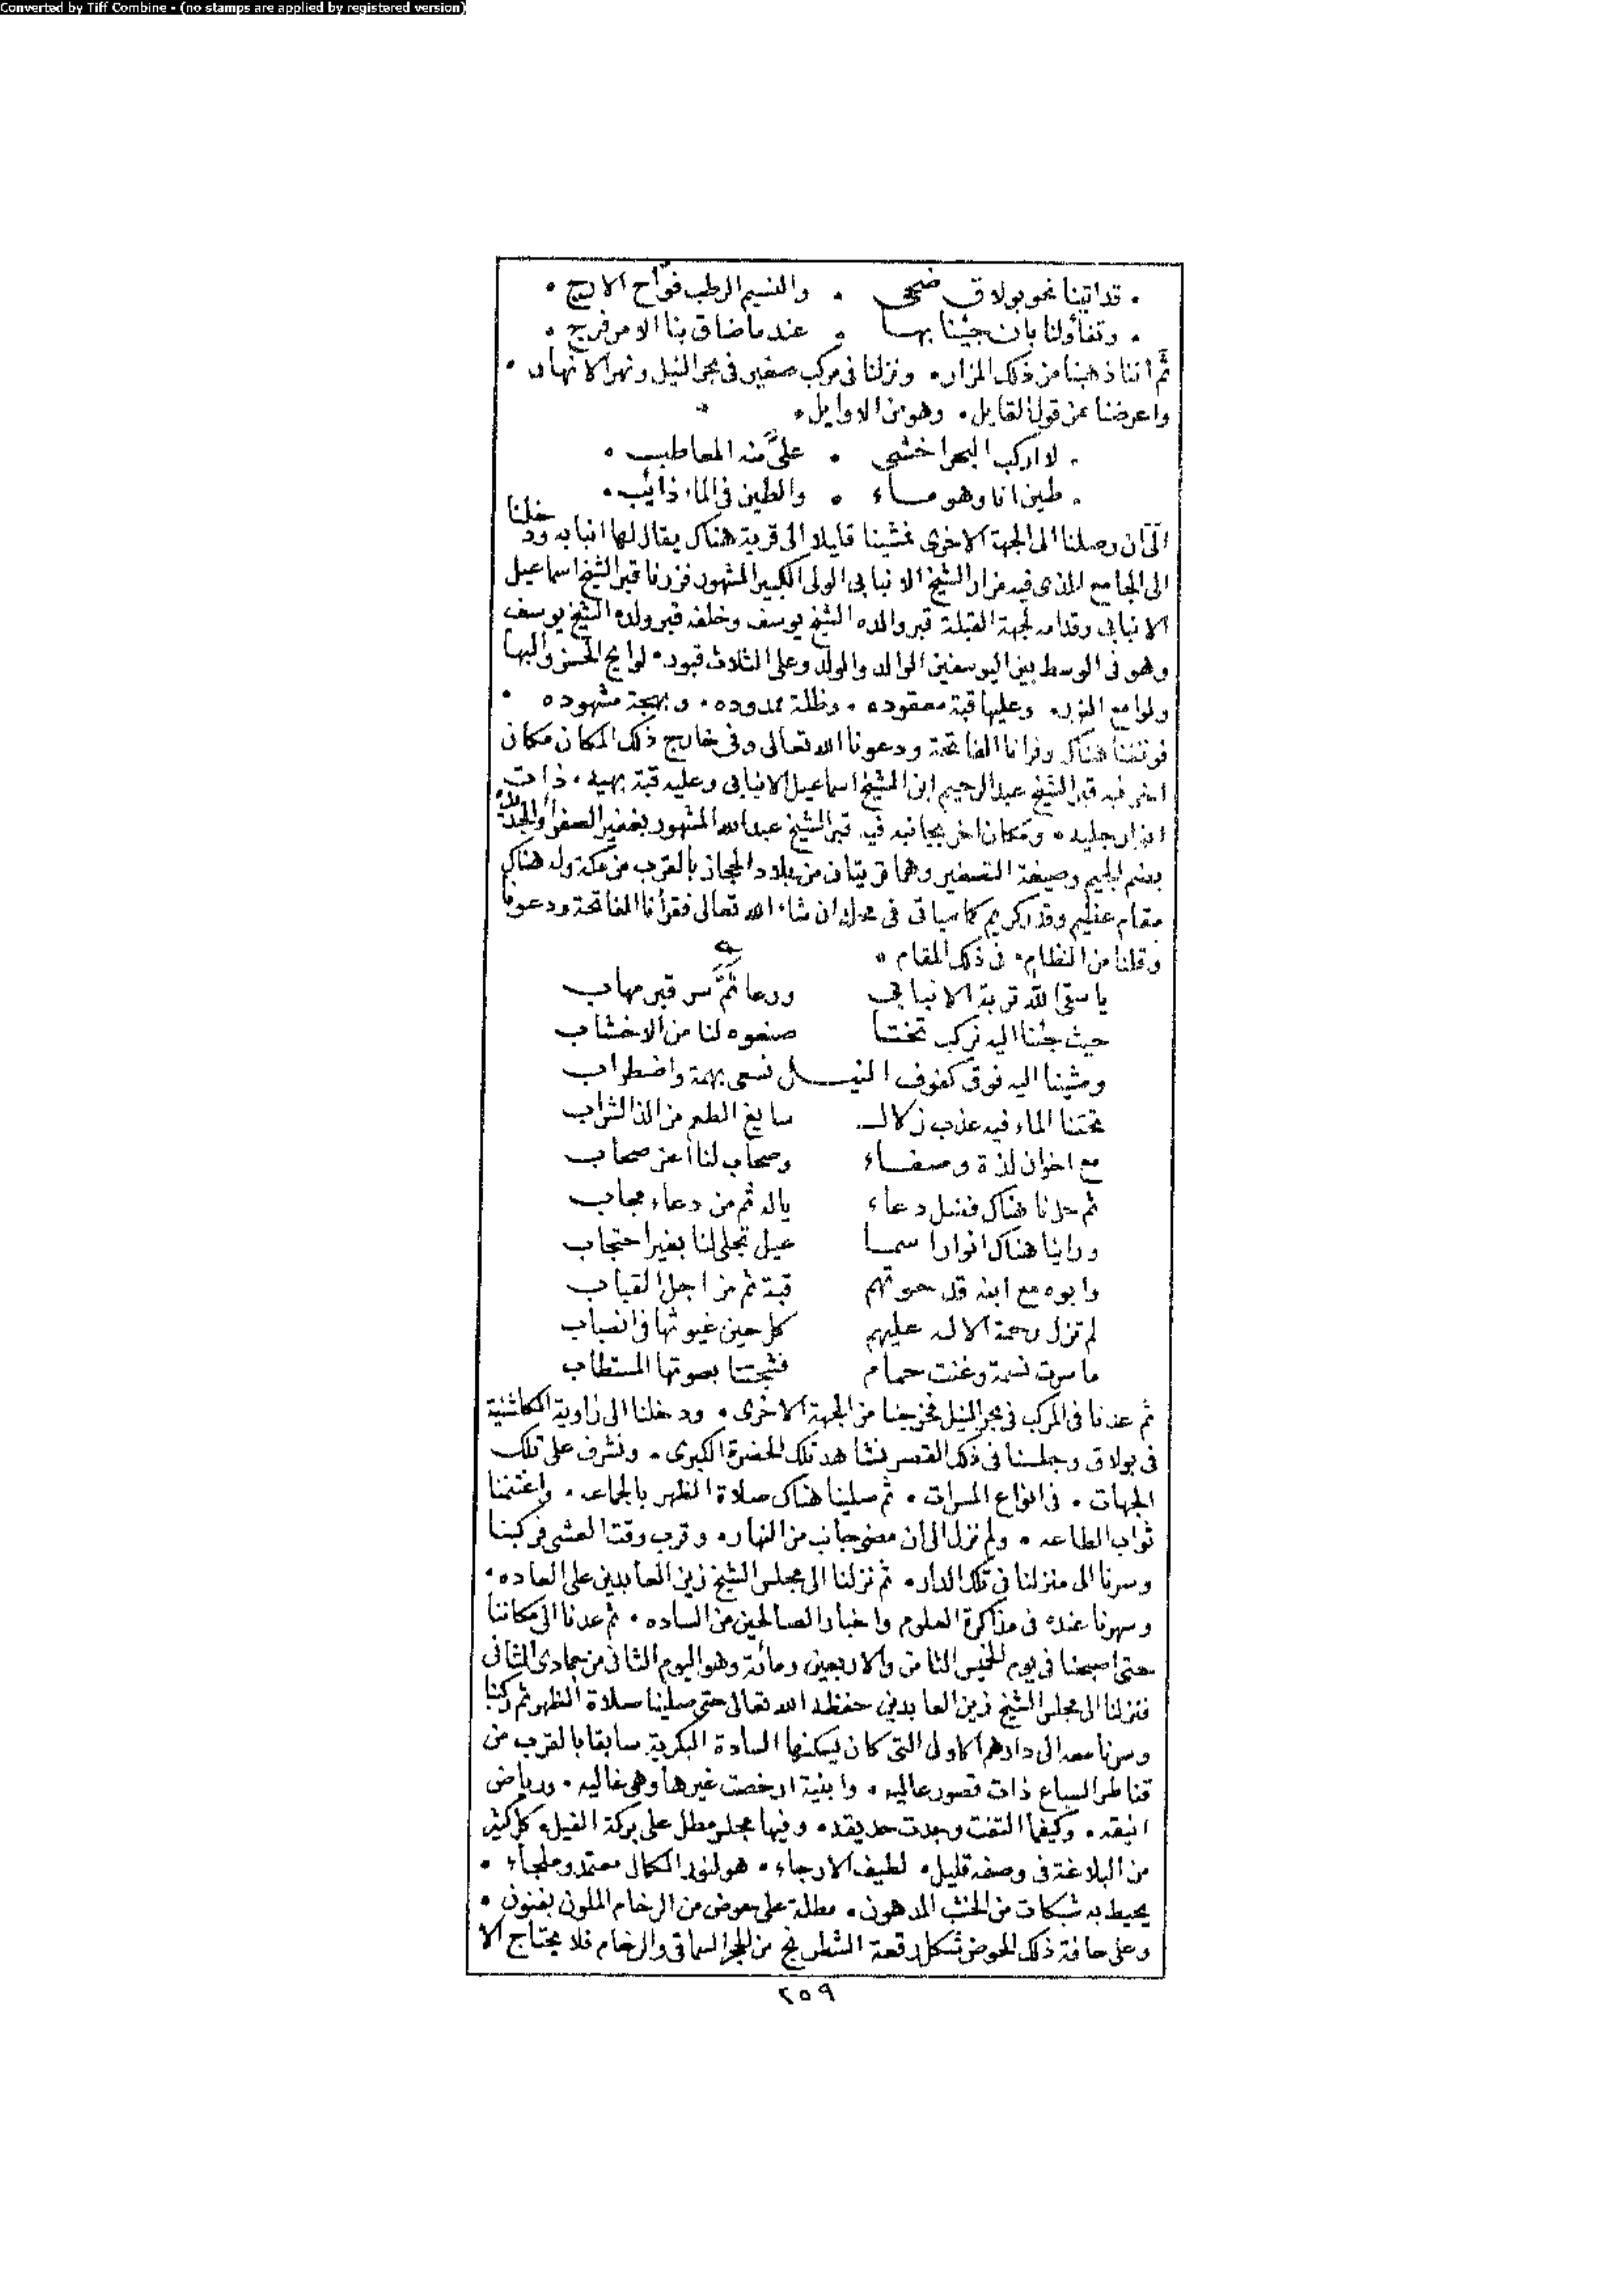 Converted by Tiff Combine - (no stamps are applied by registered version)
• قد اتينا نحو بولاق ضحى • والنسيم الرطب فوّاح الاريج •
• وتفاؤلنا بان جئنا بها • عند ما ضاق بنا الامر فريج •
ثم اننا ذهبنا من ذلك المزار • ونزلنا فى مركب صغير فى بحر النيل ونهر الانهار •
واعرضنا عن قول القايل • وهو من الاوايل •
• لا اركب البحر اخشى • علىّ منه المعاطب •
• طين انا وهو ماء • والطين فى الماء ذائب •
الى ان وصلنا الى الجهة الاخرى فمشينا قليلا الى قرية هناك يقال لها انبابه ودخلنا
الى الجامع الذى فيه مزار الشيخ الانبابى الولى الكبير المشهور فزرنا قبر الشيخ اسماعيل
الانبابى وقدامه لجهة القبلة قبر والده الشيخ يوسف وخلفه قبر ولده الشيخ يوسف
وهو فى الوسط بين اليوسفين الوالد والولد وعلى الثلاث قبور • لوايح الحسن والبها
ولوامع النور • وعليها قبة معقوده • وظلة ممدوده • وبهجة مشهوده •
فوقفنا هناك وقرانا الفاتحة ودعونا الله تعالى وفى خارج ذلك المكان مكان
اخر فيه قبر الشيخ عبد الرحيم ابن الشيخ اسماعيل الانبابى وعليه قبة بهيه • ذات
انوار جليه • ومكان اخر بجانبه فيه قبر الشيخ عبد الله المشهور بخفير الصفرا والجديده
بضم الجيم وصيغة التصغير وهما قريتان من بلاد الحجاز بالقرب من مكة وله هناك
مقام عظيم وقدر كريم كما سياتى فى محله ان شاء الله تعالى فقرأنا الفاتحة ودعونا
وقلنا من النظام • فى ذلك المقام •
يا سقى الله تربة الانبابى ورعا ثَمَّ سر قبر مهاب
حيث جئنا اليه نركب تختا صنعوه لنا من الاخشاب
ومشينا اليه فوق كفوف النيـل نسعى بهمة واضطراب
تحتنا الماء فيه عذب زلال سايغ الطعم من الذ الشراب
مع اخوان لذة وصفاء وصحاب لنا أعز صحاب
ثم حزنا هناك فضل دعاء ياله ثم من دعاء مجاب
وراينا هناك انوار اسما عيل تجلى لنا بغير احتجاب
وابوه مع ابنه قد حوتهم قبة ثم من اجل القباب
لم تزل رحمة الاله عليهم كل حين غيوثها فى انصباب
ما سرت نسمة وغنت حمام فشجتنا بصوتها المستطاب
ثم عدنا فى المركب فى بحر النيل فخرجنا من الجهة الاخرى • ودخلنا الى زاوية الكاشنية
فى بولاق وجلسنا فى ذلك القصر نشاهد تلك الحضرة الكبرى • ونشرف على تلك
الجهات • فى انواع المسرات • ثم صلينا هناك صلاة الظهر بالجماعه • واغتنمنا
ثواب الطاعه • ولم نزل الى ان مضى جانب من النهار • وقرب وقت العشى فركبنا
وسرنا الى منزلنا فى تلك الدار • ثم نزلنا الى مجلس الشيخ زين العابدين على العاده •
وسهرنا عنده فى مذاكرة العلوم واخبار الصالحين من الساده • ثم عدنا الى مكاننا
حتى اصبحنا فى يوم الخميس الثامن والاربعين ومائة وهو اليوم الثانى من جمادى الثانى
فنزلنا الى مجلس الشيخ زين العابدين حفظه الله تعالى حتى صلينا صلاة الظهر ثم ركبنا
وسرنا معه الى دارهم الاولى التى كان يسكنها السادة البكرية سابقا بالقرب من
قناطر السباع ذات قصور عاليه • وابنية ارخصت غيرها وهى غاليه • ورياض
انيقه • وكيفما التفت وجدت حديقه • وفيها مجلس مطل على بركة الفيل • كل كثير
من البلاغة فى وصفه قليل • لطيف الارجاء • هو لنور الكمال معتمد وملجأء •
يحيط به شبكات من الخشب المدهون • مطلة على حوض من الرخام الملون بفنون •
وعلى حافة ذلك الحوض شكل رقعة الشطرنج من الحجر السماقى والرخام فلا يحتاج الا
٢٥٩